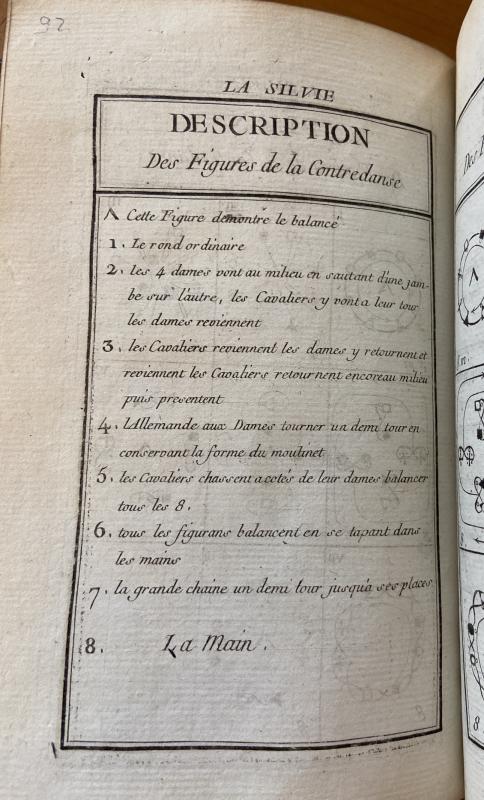 92
LA SILVIE
DESCRIPTION
Des Figures de la Contredanse
Λ Cette Figure démontre le balancé
1. Le rond ordinaire
2. les 4 dames vont au milieu en sautant d'une jam-
be sur l'autre, les Cavaliers y vont a leur tour
les dames reviennent
3. les Cavaliers reviennent les dames y retournent et
reviennent les Cavaliers retournent encore au milieu
puis presentent
4. lAllemande aux Dames tourner un demi tour en
conservant la forme du moulinet
5. les Cavaliers chassent a cotés de leur dames balancer
tous les 8.
6. tous les figurans balancent en se tapant dans
les mains
7. la grande chaine un demi tour jusqu'a ses places
8. La Main.
Λ
8